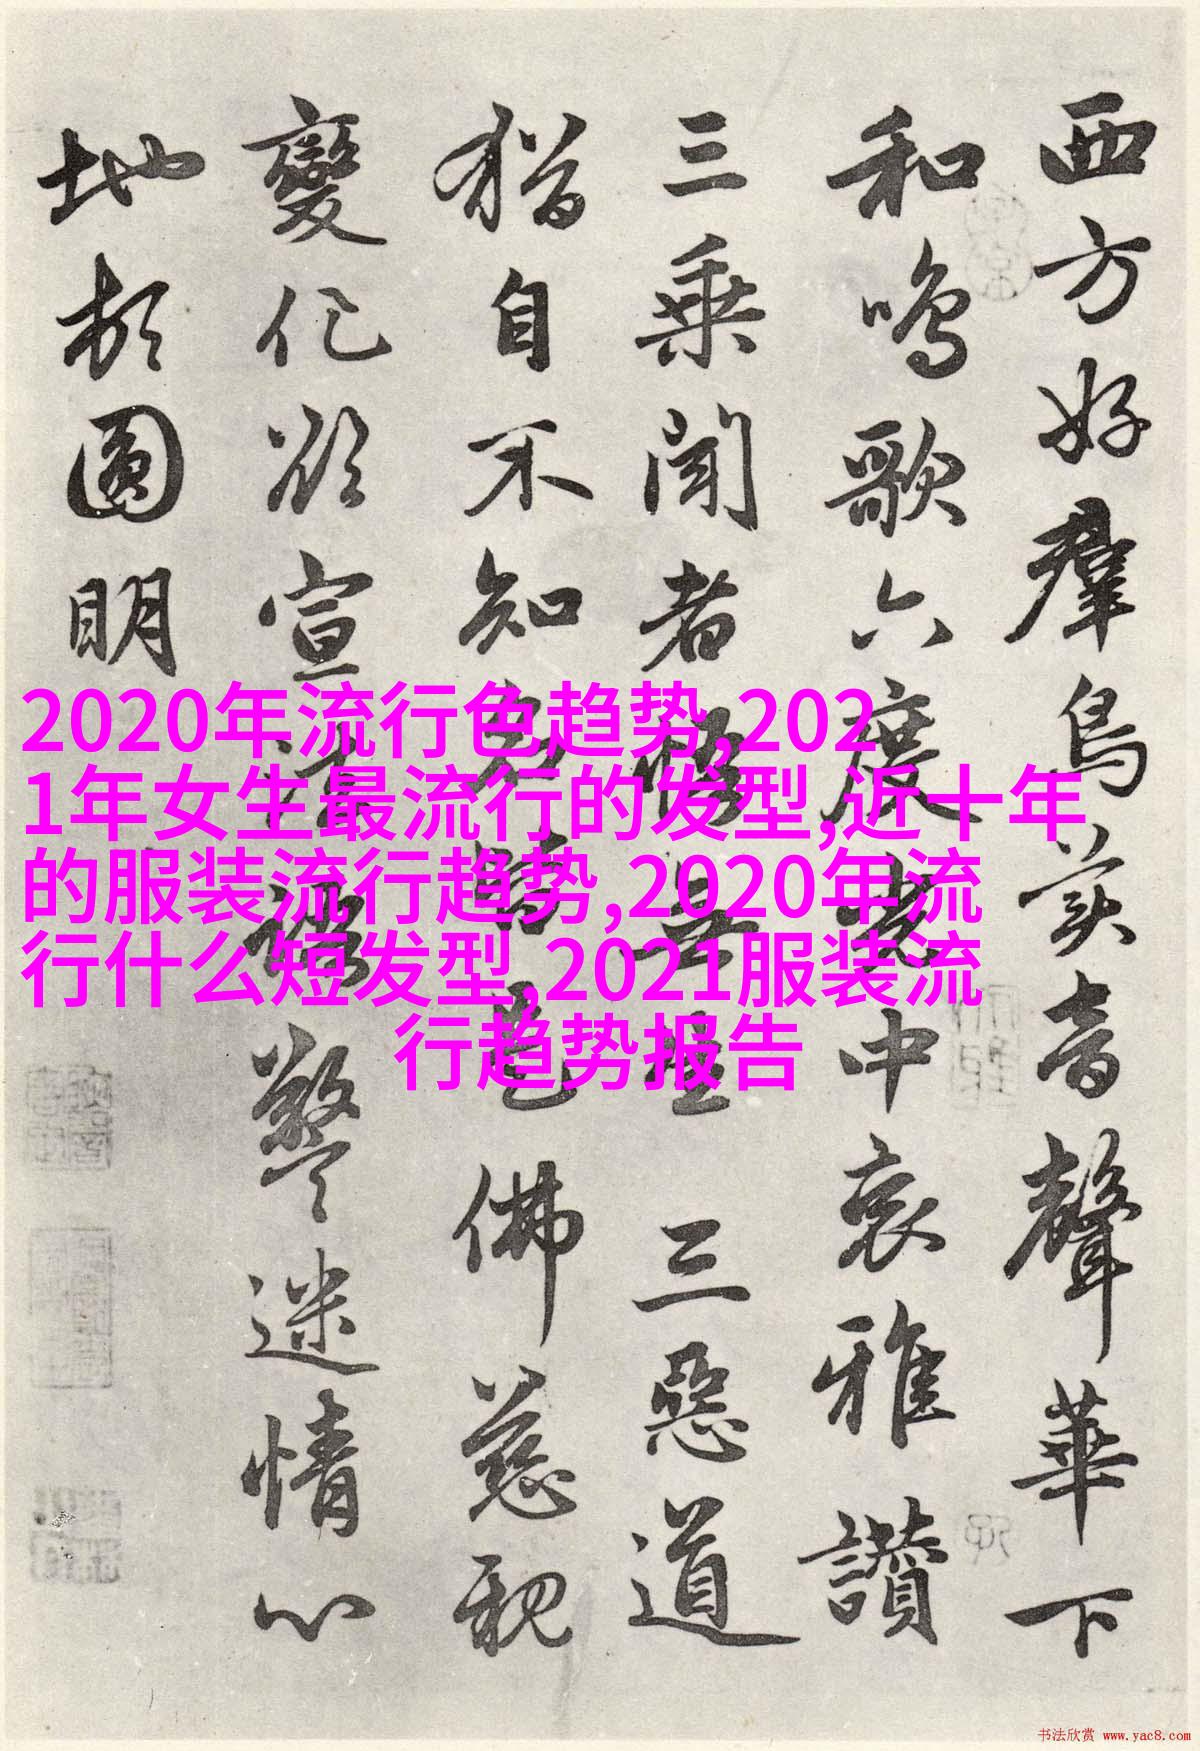 西方好群鳥美音聲華下
和鳴歌六度光中哀雅讚
三乘聞者悟無生三惡道
猶自不知名皆是佛慈親
變化欲宣法語警迷情心
地頓圓明
2020年流行色趋势,202
1年女生最流行的发型,近十年
的服装流行趋势,2020年流
行什么短发型,2021服装流
行趋势报告
书法欣赏 www.yac8.com